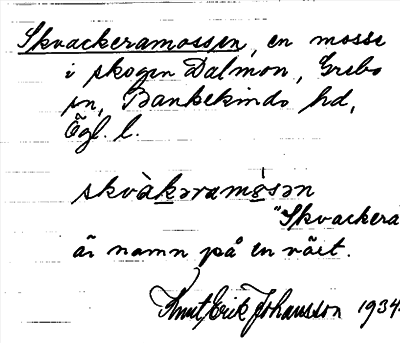 Skvackeramossen, en mosse
i skogen Dalmon, Grebo
sn, Bankekinds hd,
Ögl. l.
skvàkəramósən
"Skvackera
är namn på en växt.
Knut Erik Johansson 1934.